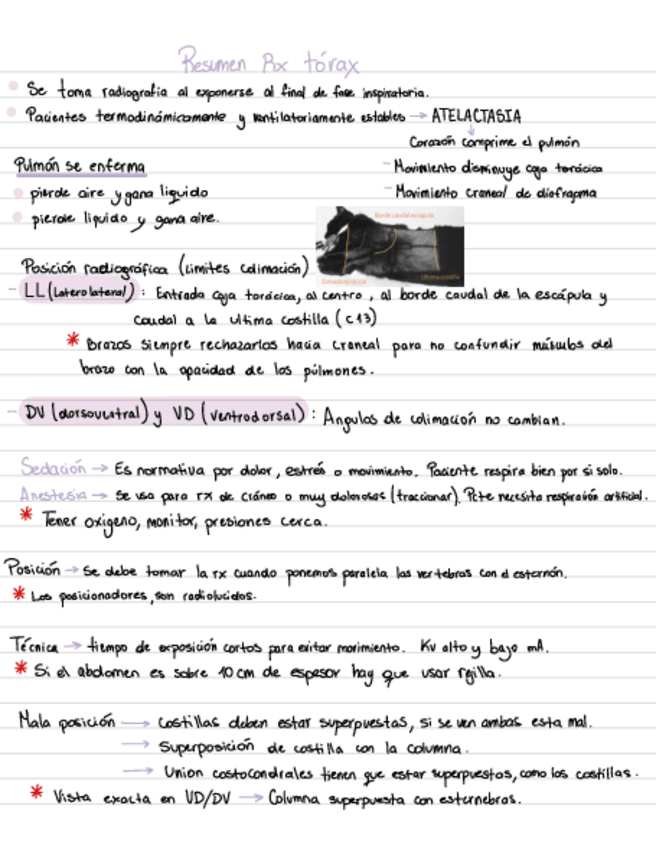 Resumen Rx tórax
Se toma radiografia al exponerse al final de fase inspiratoria.
Pacientes termodinámicamente y ventilatoriamente estables → ATELACTASIA
Corazón comprime el pulmón
Pulmón se enferma
- Movimiento disminuye caja torácica
pierde aire y gana liquido
- Movimiento craneal de diafragma
pierde liquido y gana aire.
Borde caudal escapula
Posición radiográfica (Limites colimación)
Ultima costilla
- LL (Laterolateral) : Entrada caja torácica, al centro, al borde caudal de la escápula y
caudal a la ultima costilla (c13)
* Brazos siempre rechazarlos hacia craneal para no confundir músculos del
brazo con la opacidad de los púlmones.
- DV (dorsoventral) y VD (ventrodorsal) : Angulos de colimación no cambian.
Sedación → Es normativa por dolor, estrés o movimiento. Paciente respira bien por si solo.
Anestesia → Se usa para rx de cráneo o muy dolorosas (traccionar). Pcte necesita respiración artificial.
* Tener oxigeno, monitor, presiones cerca.
Posición → Se debe tomar la rx cuando ponemos paralela las vertebras con el esternón.
* Los posicionadores, son radiolucidos.
Técnica → tiempo de exposición cortos para evitar movimiento. Kv alto y bajo mA.
* Si el abdomen es sobre 10 cm de espesor hay que usar rejilla.
Mala posición → Costillas deben estar superpuestas, si se ven ambas esta mal.
→ Superposición de costilla con la columna.
→ Union costocondrales tienen que estar superpuestas, como las costillas.
* Vista exacta en VD/DV → Columna superpuesta con esternebras.